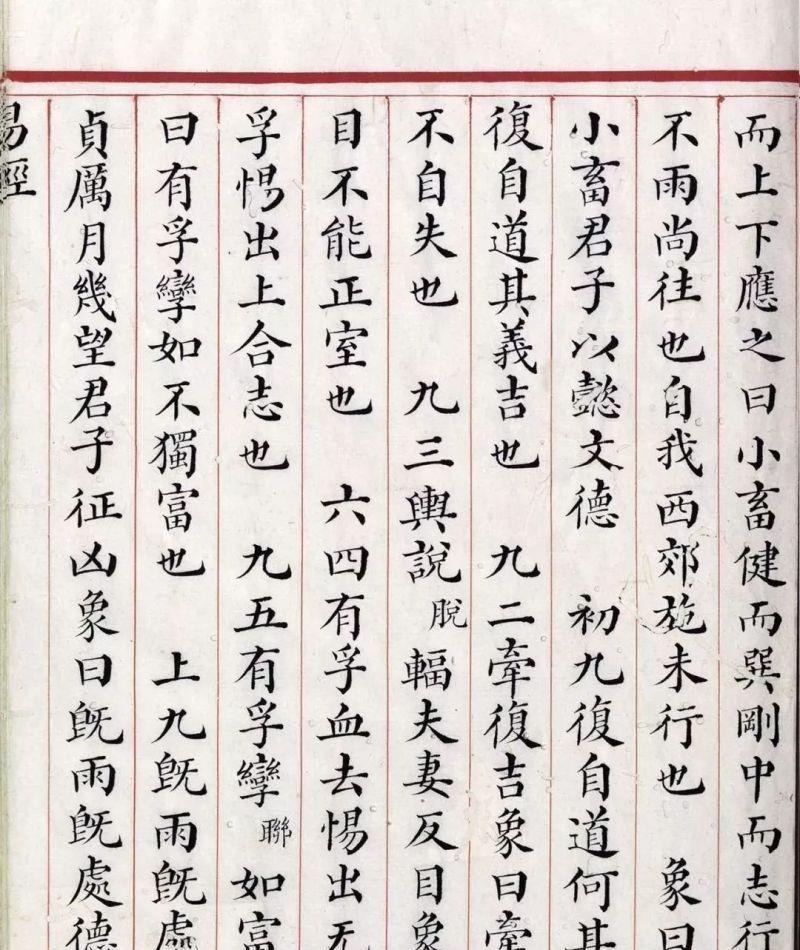 而上下應之曰小畜健而巽剛中而志行
不雨尚往也自我西郊施未行也　象曰
小畜君子以懿文德　初九復自道何其
復自道其義吉也　九二牽復吉象曰牽
不自失也　九三輿說脫輻夫妻反目象
目不能正室也　六四有孚血去惕出无
孚惕出上合志也　九五有孚攣聯如富
曰有孚攣如不獨富也　上九既雨既處
貞厲月幾望君子征凶象曰既雨既處德
易經